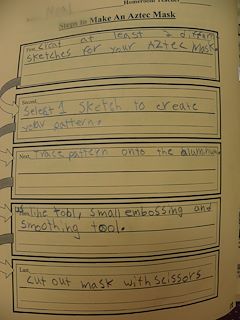 Homeroom Teacher
Steps to Make An Aztec Mask
First, creat at least 2
sketches for your Aztec Mask
Second, Select 1 sketch to create
your pattern.
Next, Trace pattern onto the aluminum.
line tool, small embossing and
smoothing tool.
Last, cut out mask with scissors